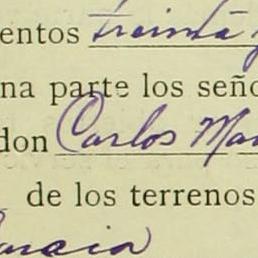 entos Treinta y
na parte los seño
don Carlos Ma
de los terrenos
Garcia